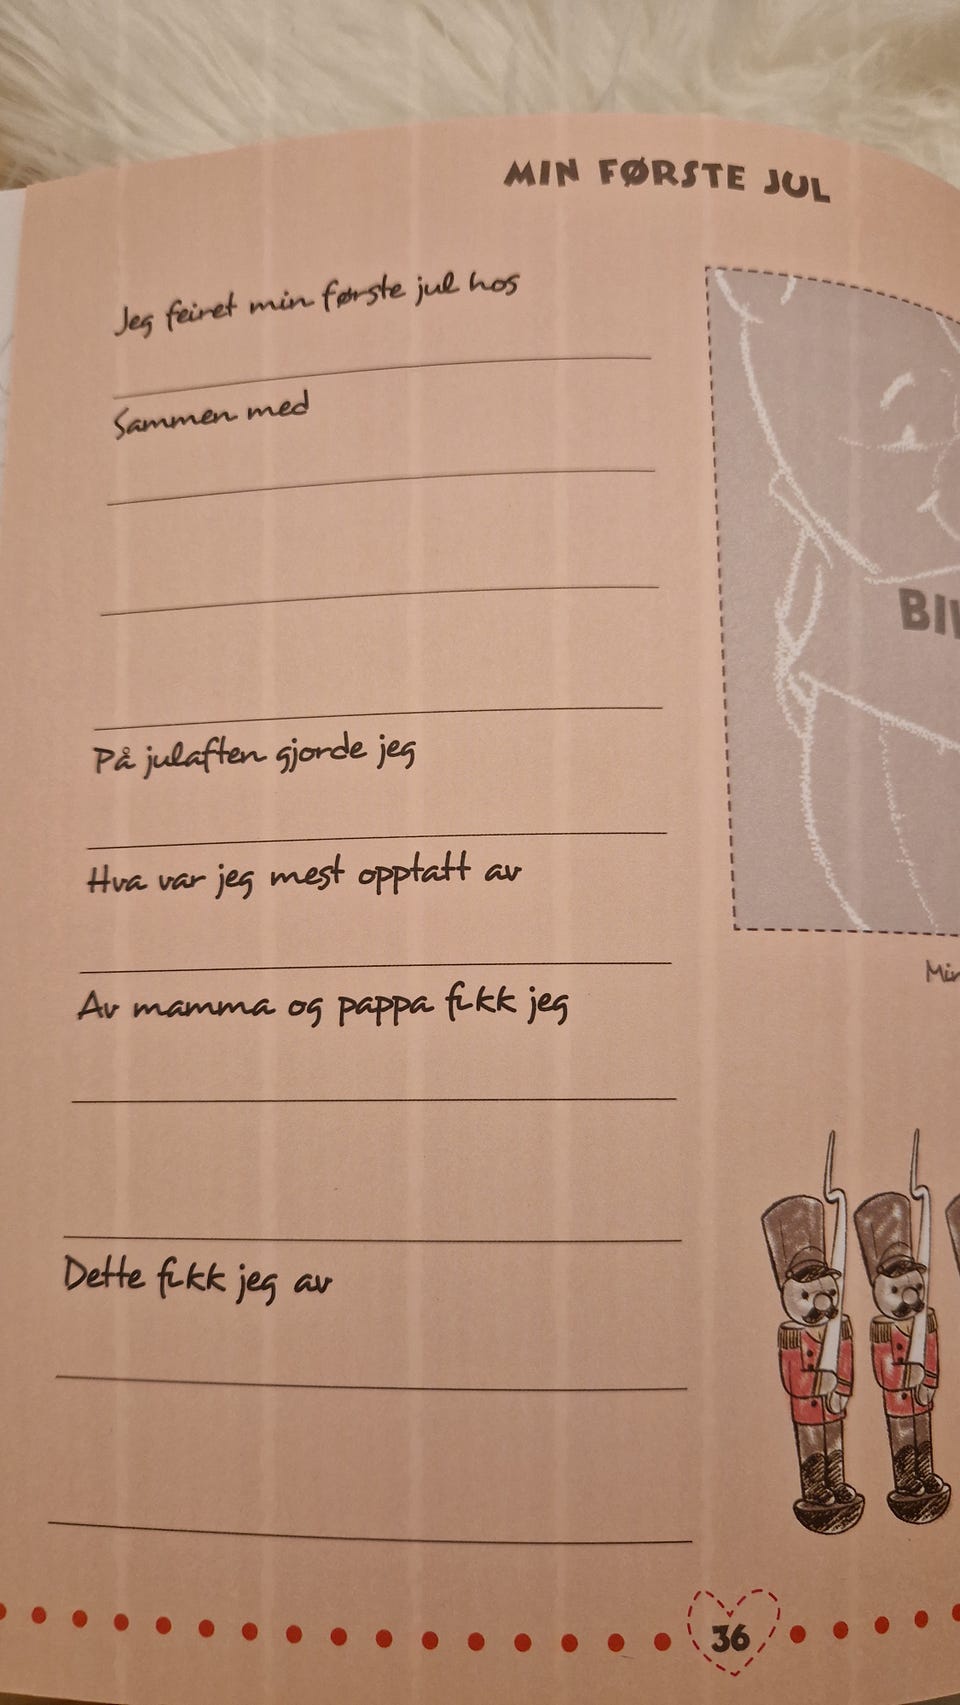 MIN FØRSTE JUL
Jeg feiret min første jul hos
Sammen med
På julaften gjorde jeg
Hva var jeg mest opptatt av
Av mamma og pappa fikk jeg
Dette fikk jeg av
36